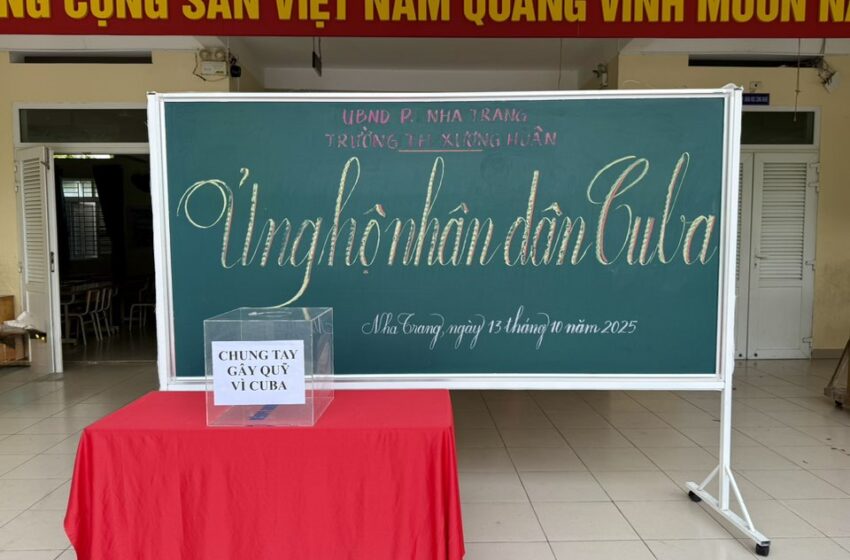 NG CỘNG SẢN VIỆT NAM QUANG VINH MUÔN NĂ
UBND P. NHA TRANG
TRƯỜNG TH XƯƠNG HUÂN
Ủng hộ nhân dân Cuba
Nha Trang, ngày 13 tháng 10 năm 2025
CHUNG TAY
GÂY QUỸ
VÌ CUBA